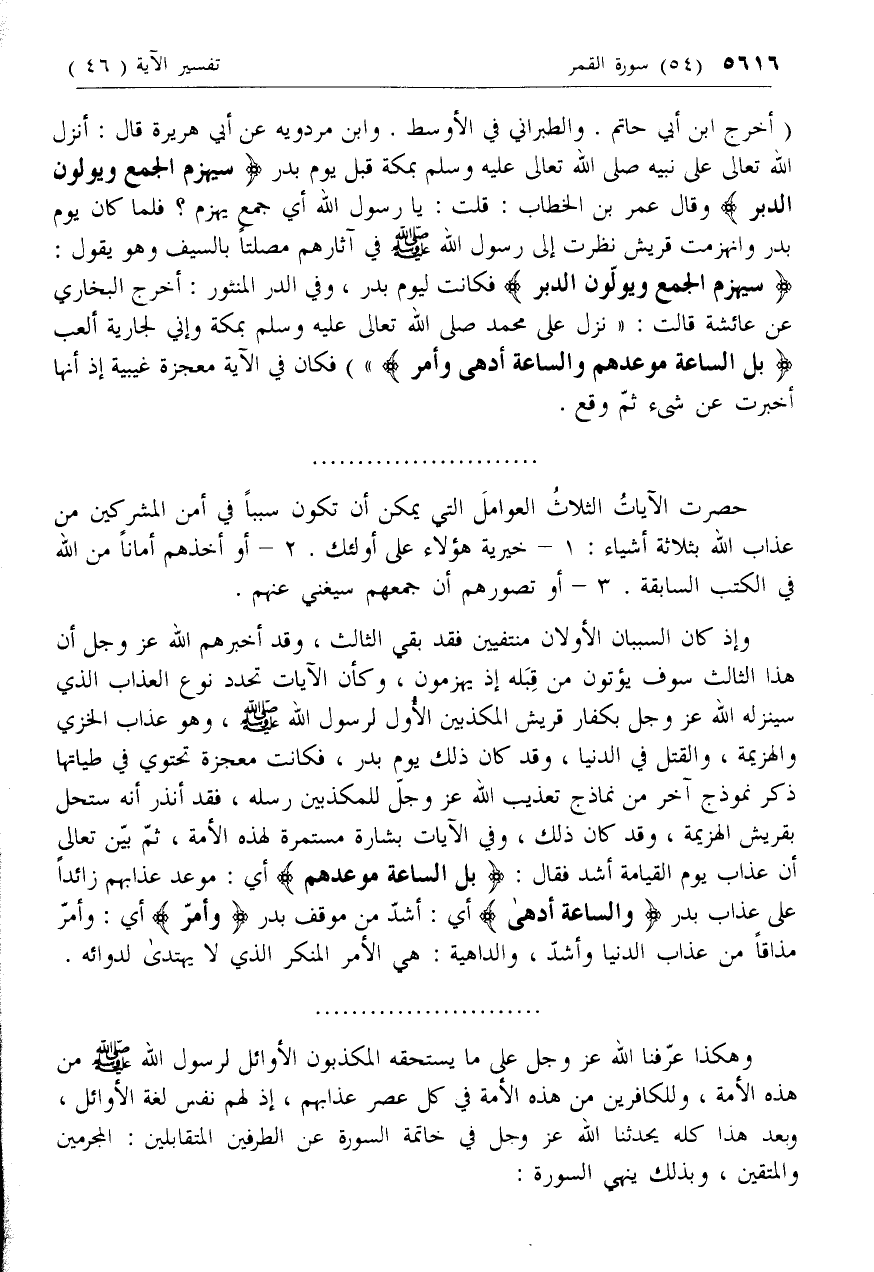 ٥٦١٦ (٥٤) سورة القمر تفسير الآية ( ٤٦ )
( أخرج ابن أبي حاتم . والطبراني في الأوسط . وابن مردويه عن أبي هريرة قال : أنزل
الله تعالى على نبيه صلى الله تعالى عليه وسلم بمكة قبل يوم بدر ﴿ سيهزم الجمع ويولون
الدبر ﴾ وقال عمر بن الخطاب : قلت : يا رسول الله أي جمع يهزم ؟ فلما كان يوم
بدر وانهزمت قريش نظرت إلى رسول الله ﷺ في آثارهم مصلتاً بالسيف وهو يقول :
﴿ سيهزم الجمع ويولّون الدبر ﴾ فكانت ليوم بدر ، وفي الدر المنثور : أخرج البخاري
عن عائشة قالت : « نزل على محمد صلى الله تعالى عليه وسلم بمكة وإني لجارية ألعب
﴿ بل الساعة موعدهم والساعة أدهى وأمر ﴾ » ) فكان في الآية معجزة غيبية إذ أنها
أخبرت عن شىء ثمّ وقع .
.........................
حصرت الآياتُ الثلاثُ العواملَ التي يمكن أن تكون سبباً في أمن المشركين من
عذاب الله بثلاثة أشياء : ١ – خيرية هؤلاء على أولئك . ٢ – أو أخذهم أماناً من الله
في الكتب السابقة . ٣ – أو تصورهم أن جمعهم سيغني عنهم .
وإذ كان السببان الأولان منتفيين فقد بقي الثالث ، وقد أخبرهم الله عز وجل أن
هذا الثالث سوف يؤتون من قِبَله إذ يهزمون ، وكأن الآيات تحدد نوع العذاب الذي
سينزله الله عز وجل بكفار قريش المكذبين الأُول لرسول الله ﷺ ، وهو عذاب الخزي
والهزيمة ، والقتل في الدنيا ، وقد كان ذلك يوم بدر ، فكانت معجزة تحتوي في طياتها
ذكر نموذج آخر من نماذج تعذيب الله عز وجلّ للمكذبين رسله ، فقد أنذر أنه ستحل
بقريش الهزيمة ، وقد كان ذلك ، وفي الآيات بشارة مستمرة لهذه الأمة ، ثمّ بيّن تعالى
أن عذاب يوم القيامة أشد فقال : ﴿ بل الساعة موعدهم ﴾ أي : موعد عذابهم زائداً
على عذاب بدر ﴿ والساعة أدهىٰ ﴾ أي : أشدّ من موقف بدر ﴿ وأمرّ ﴾ أي : وأمرّ
مذاقاً من عذاب الدنيا وأشدّ ، والداهية : هي الأمر المنكر الذي لا يهتدىٰ لدوائه .
.........................
وهكذا عرّفنا الله عز وجل على ما يستحقه المكذبون الأوائل لرسول الله ﷺ من
هذه الأمة ، وللكافرين من هذه الأمة في كل عصر عذابهم ، إذ لهم نفس لغة الأوائل ،
وبعد هذا كله يحدثنا الله عز وجل في خاتمة السورة عن الطرفين المتقابلين : المجرمين
والمتقين ، وبذلك ينهي السورة :